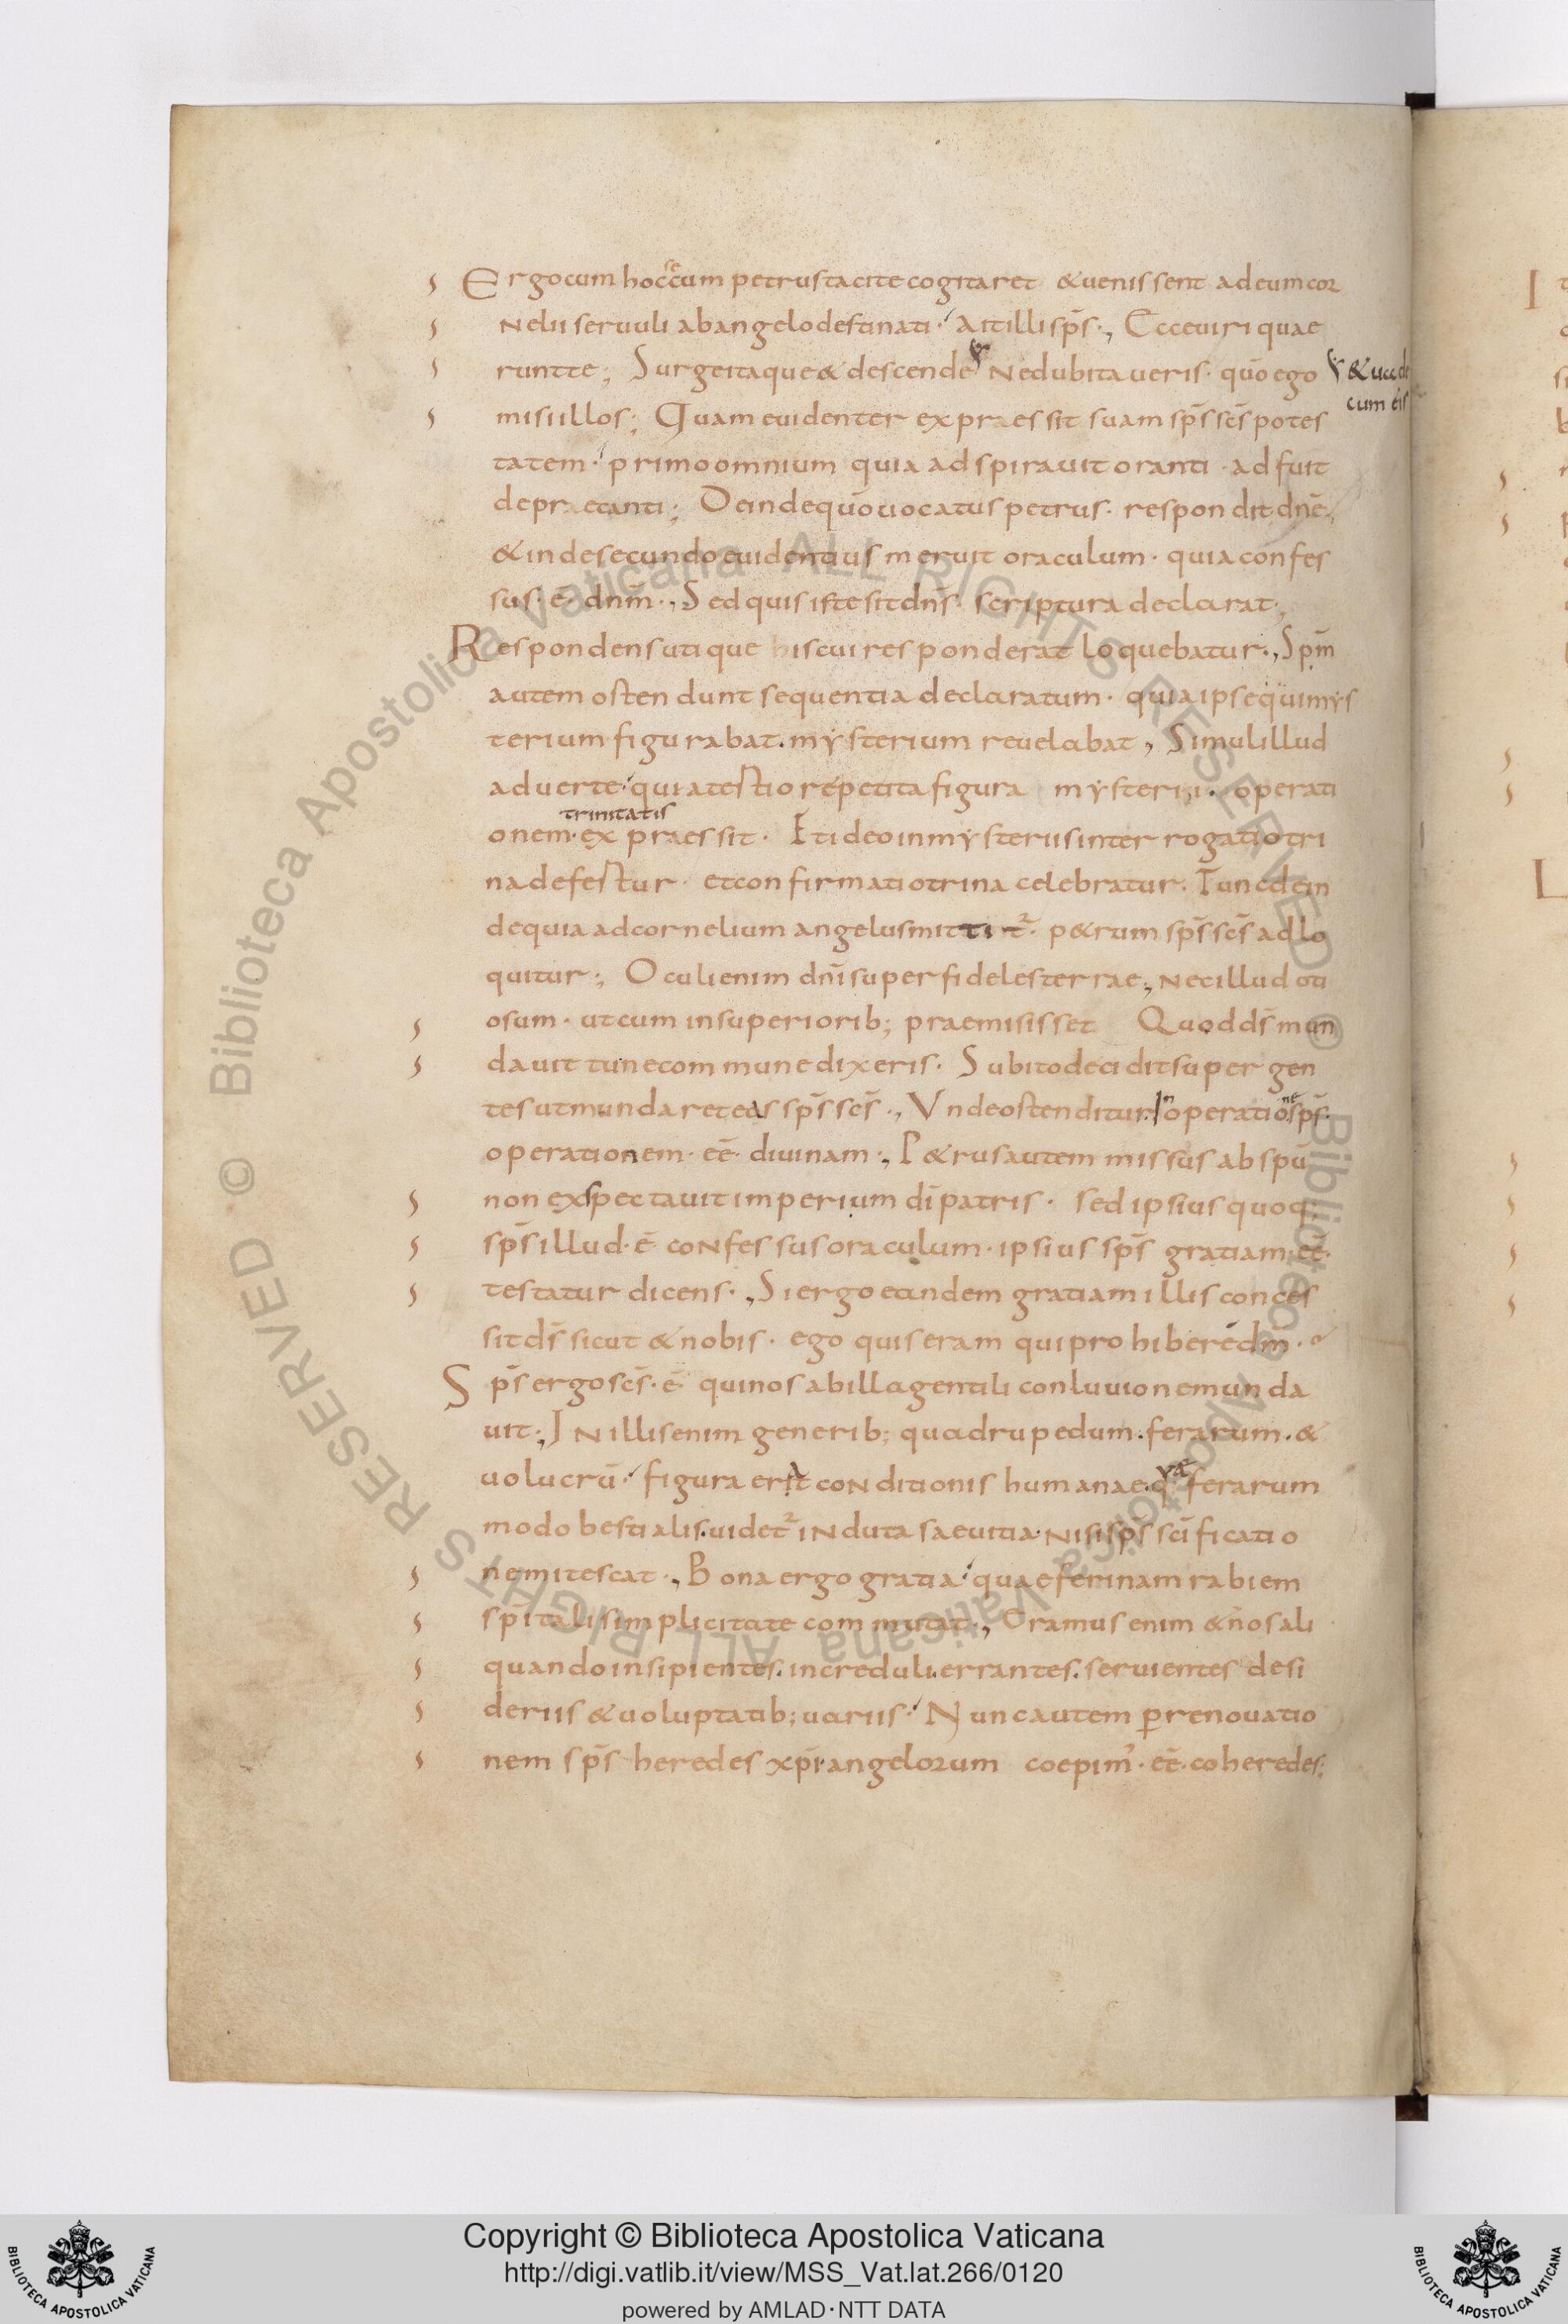 Ergo cum hoc secum petrus tacite cogitaret & uenissent ad eum cor
nelii seruuli ab angelo destinati· Ait illi sp̄s·, Ecce uiri quae
runt te; Surge itaque & descende Ne dubitaueris· quō ego & uade
cum eis
misi illos; Quam euidenter expraessit suam sp̄s sc̄s potes
tatem· primo omnium quia adspirauit oranti· adfuit
depraecanti; Deinde quō uocatus petrus· respondit dn̄e,
& inde secundo euidentius meruit oraculum· quia confes
sus· ē· dn̄m·, Sed quis iste sit dn̄s· scriptura declarat,
Respondens utique his cui responderat loquebatur·, Sp̄m
autem ostendunt sequentia declaratum· quia ipse qui mẏs
terium figurabat· mẏsterium reuelabat, Simul illud
aduerte quia tertio repetita figura mẏsterii· operati
trinitatis
onem· expraessit· Et ideo in mẏsteriis interrogatio tri
na defertur· et confirmatio trina celebratur. Tunc dein
de quia ad cornelium angelus mittit᷑· p&rum sp̄s sc̄s adlo
quitur; Oculi enim dn̄i super fideles terrae, nec illud oti
osum· ut cum in superiorib; praemisisset Quod d̄s mun
dauit tu ne commune dixeris· Subito decidit super gen
tes ut mundaret eas sp̄s sc̄s·, Unde ostenditur In operatione sp̄s·
operationem· eē· diuinam·, P&rus autem missus ab spū
non exspectauit imperium dī patris· sed ipsius quoq;
sp̄s illud· ē confessus oraculum· ipsius sp̄s gratiam· eē·
testatur dicens·, Si ergo eandem gratiam illis conces
sit d̄s sicut & nobis· ego quis eram qui prohiberē dm̄·
Sp̄s ergo sc̄s· ē· qui nos ab illa gentili conluuione munda
uit·, In illis enim generib; quadrupedum· ferarum· &
uolucrū· figura erat conditionis humanae· quae ferarum
modo bestialis· uidet᷑ induta saeuitia· nisi sp̄s scīficatio
ne mitescat·, Bona ergo gratia· quae ferinam rabiem
spītali simplicitate commutat·, Eramus enim & nos ali
quando insipientes· increduli· errantes· seruientes desi
deriis & uoluptatib; uariis· Nunc autem ꝑ renouatio
nem sp̄s heredes xp̄i· angelorum coepim᾽· eē· coheredes;
Copyright © Biblioteca Apostolica Vaticana
http://digi.vatlib.it/view/MSS_Vat.lat.266/0120
powered by AMLAD·NTT DATA
BIBLIOTECA APOSTOLICA VATICANA
BIBLIOTECA APOSTOLICA VATICANA
© Biblioteca Apostolica Vaticana ALL RIGHTS RESERVED
© Biblioteca Apostolica Vaticana ALL RIGHTS RESERVED